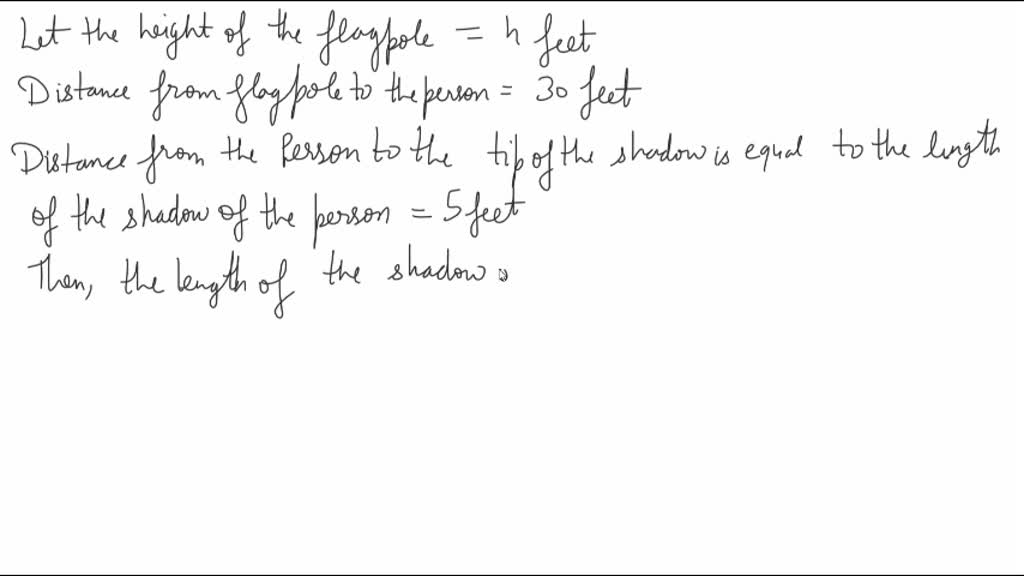 Let the height of the flagpole = h feet
Distance from flagpole to the person = 30 feet
Distance from the Person to the tip of the shadow is equal to the length
of the shadow of the person = 5 feet
Then, the length of the shadow